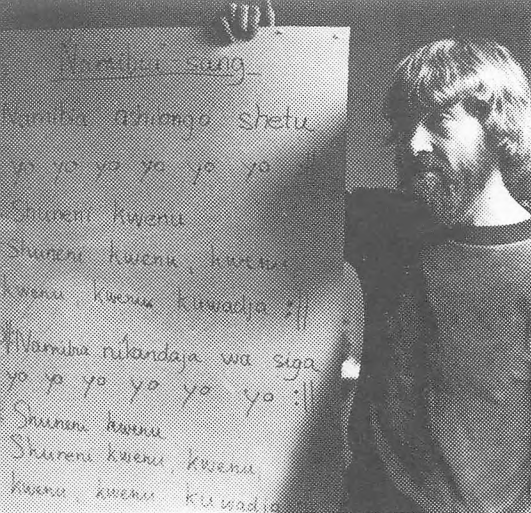 Namibia sang
Namibia oshilongo shetu
yo yo yo yo yo yo :||
Shuneni kwenu
Shuneni kwenu, kwenu,
kwenu, kwenu kuwadja :||
Namibia nilandaja wa siga
yo yo yo yo yo yo :||
Shuneni kwenu
Shureni kwenu, kwenu,
kwenu, kwenu kuwadja